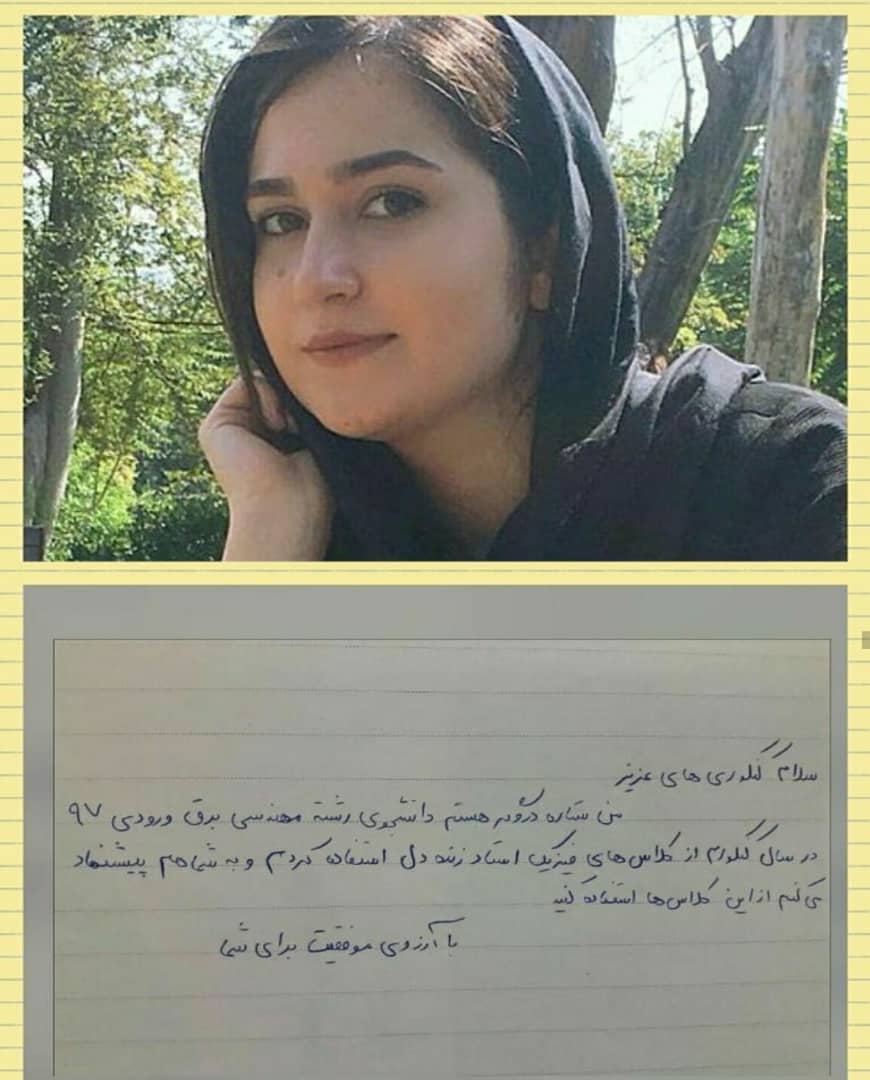 سلام کنکوری های عزیز
من ستاره هستم دانشجوی رشته مهندسی برق ورودی ۹۷
در سال کنکورم از کلاس های فیزیک استاد زنده دل استفاده کردم و به شما هم پیشنهاد
می کنم از این کلاس ها استفاده کنید
با آرزوی موفقیت برای شما